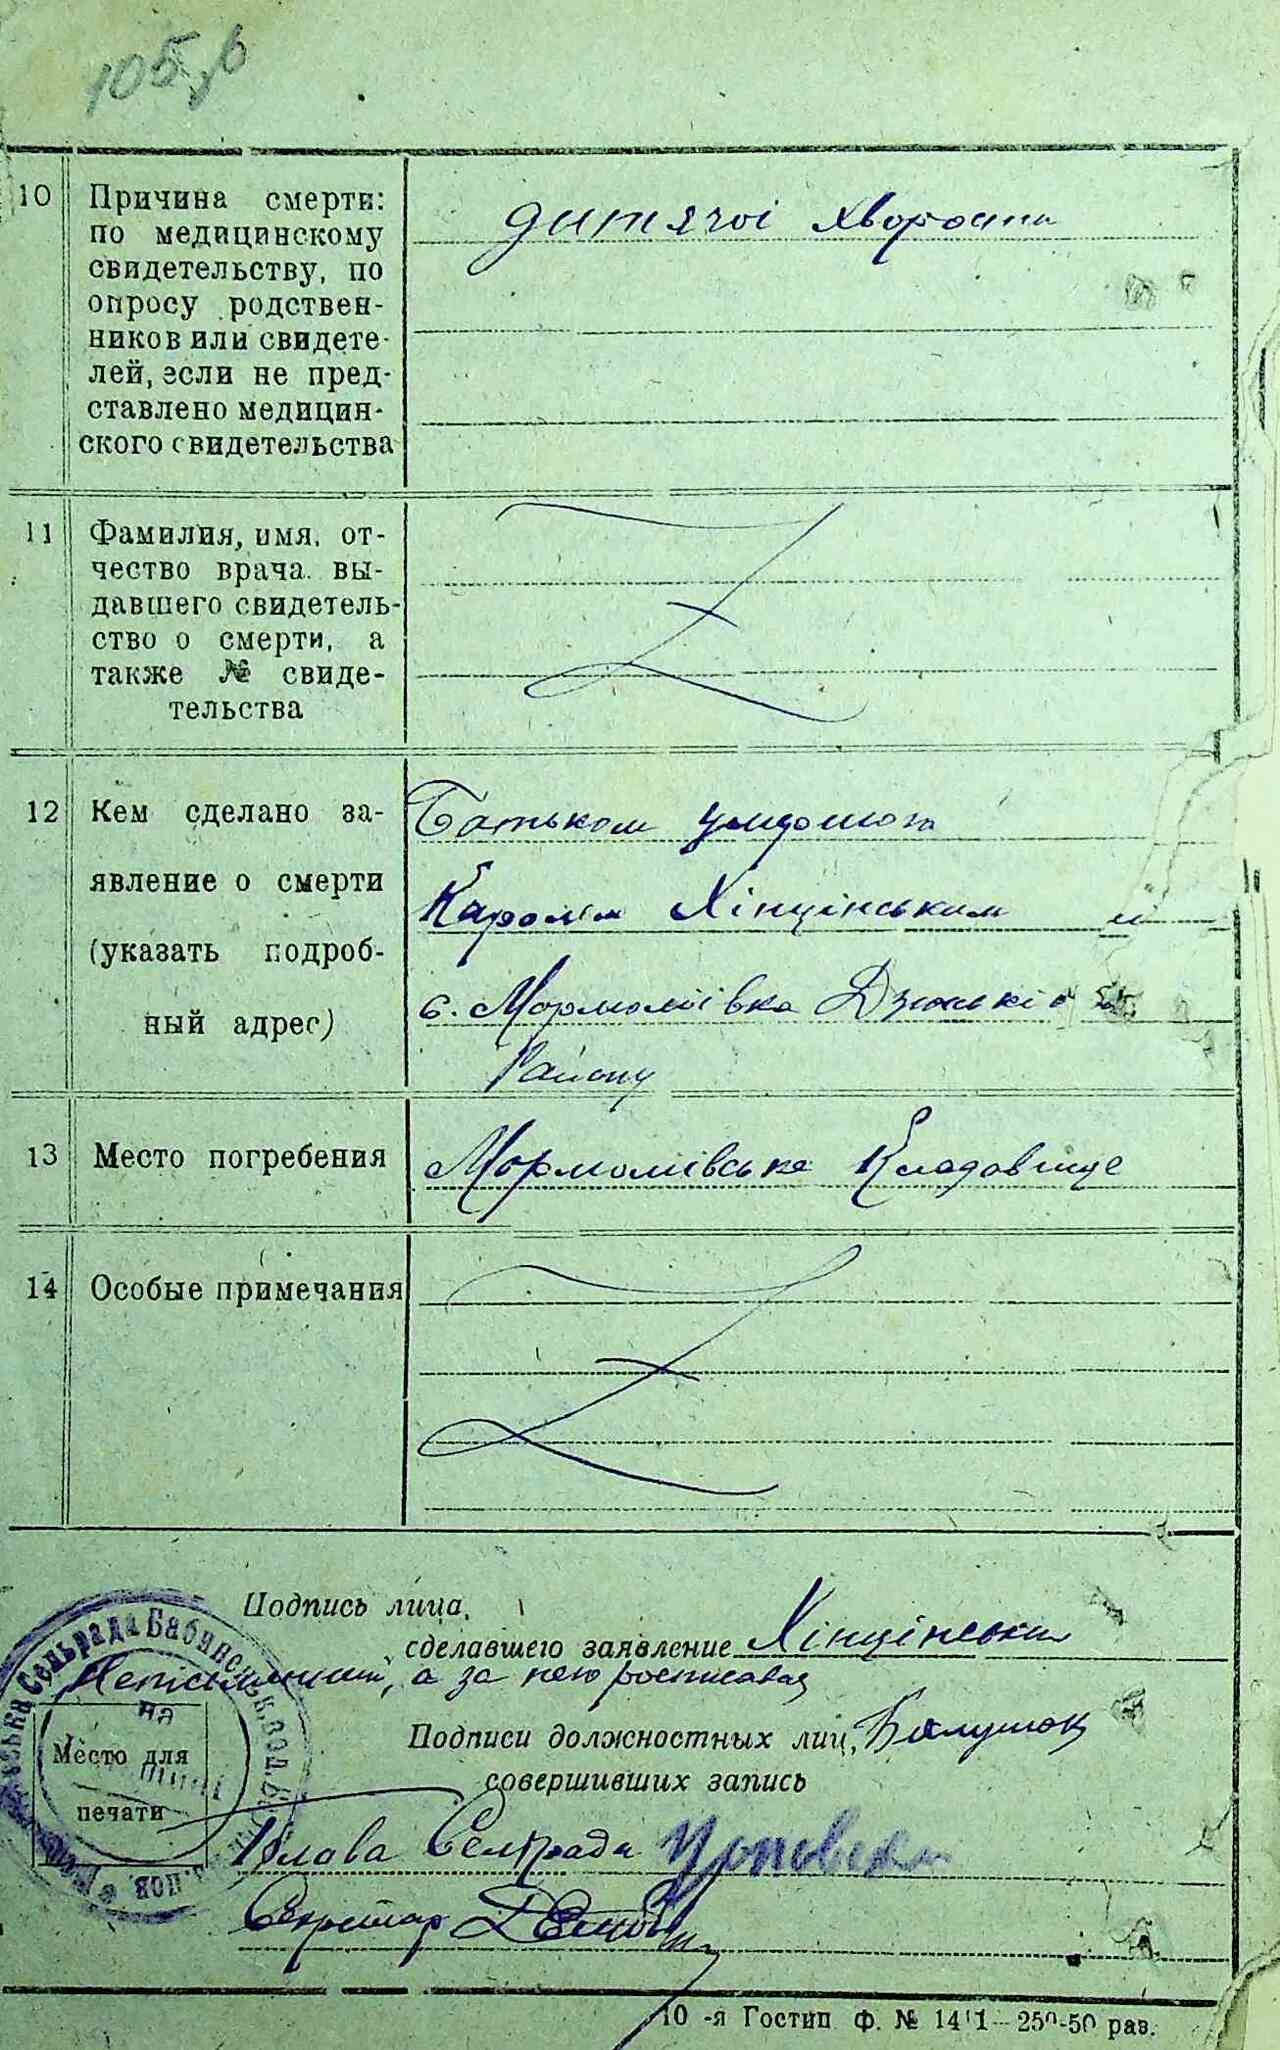 105
10
Причина смерти:
по медицинскому
свидетельству, по
опросу родствен-
ников или свидете-
лей, если не пред-
ставлено медицин-
ского свидетельства
дитячої хворости
11
Фамилия, имя, от-
чество врача, вы-
давшего свидетель-
ство о смерти, а
также № свиде-
тельства
12
Кем сделано за-
явление о смерти
(указать подроб-
ный адрес)
Батьком
Каролем Хінцінським
с. Мормоліівка
Району
13
Место погребения
Мормолівське Кладовище
14
Особые примечания
Подпись лица,
сделавшего заявление Хінцінський
а за него росписався
Подписи должностных лиц,
совершивших запись
Место для
печати
Сельрада Бабинськ
Голова Селради
Секретар
10 -я Гостип ф. № 1411 — 250-50 раз.